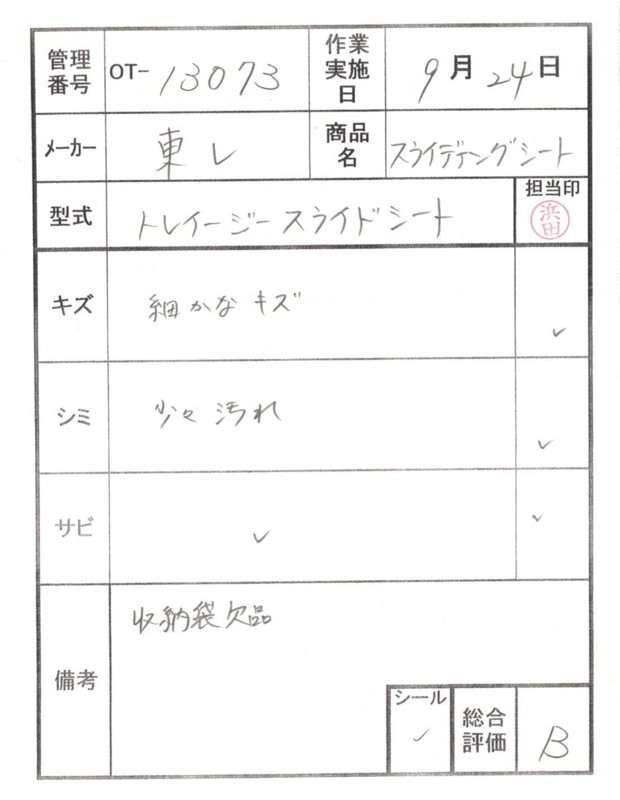 管理番号 OT- 13073 作業実施日 9月24日
メーカー 東レ 商品名 スライディングシート
型式 トレイージースライドシート 担当印 浜田
キズ 細かなキズ ✓
シミ 少々汚れ ✓
サビ ✓ ✓
備考 収納袋欠品
シール ✓ 総合評価 B